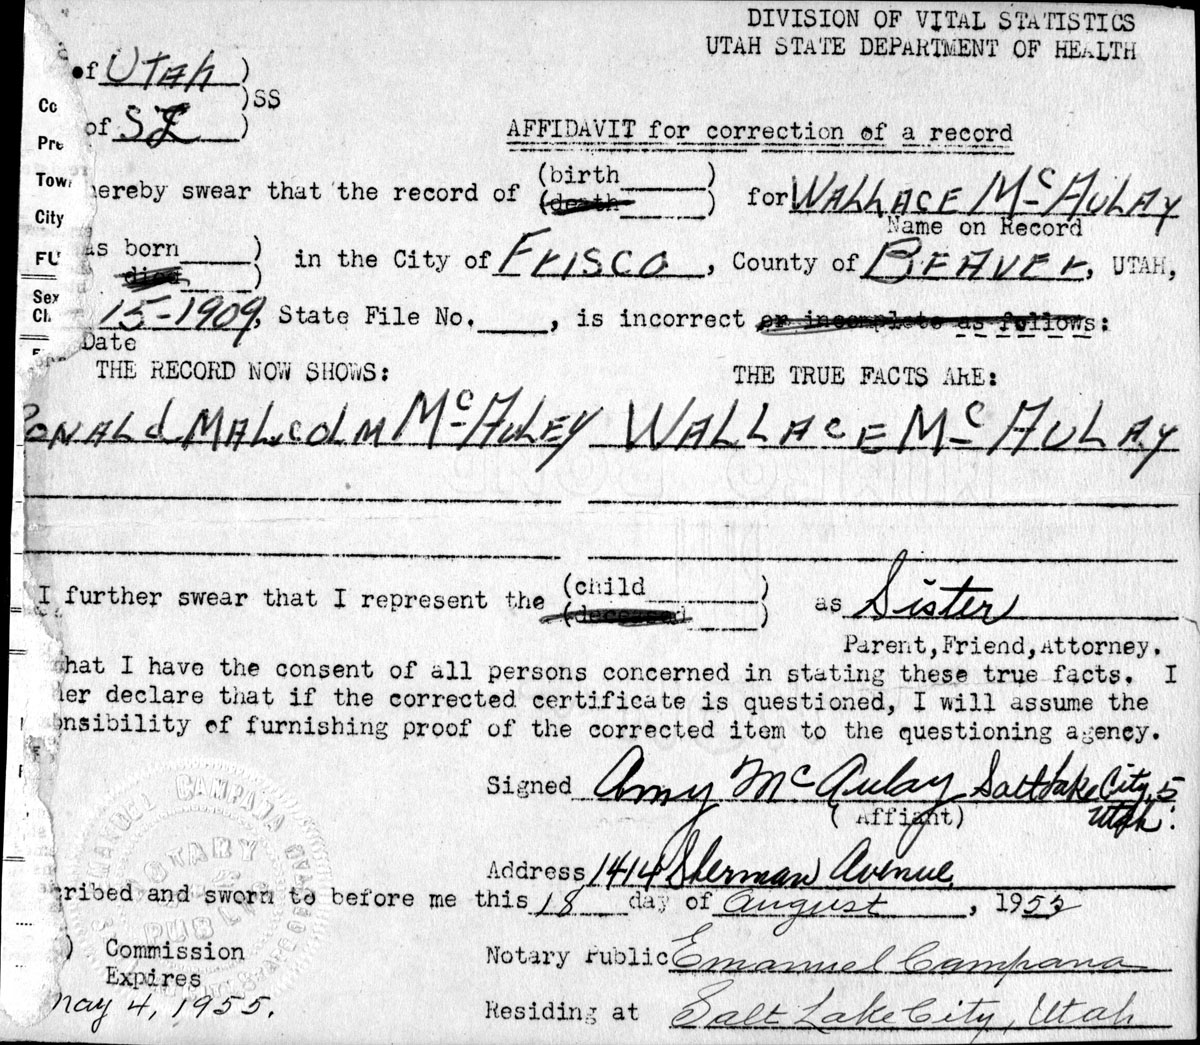 DIVISION OF VITAL STATISTICS
UTAH STATE DEPARTMENT OF HEALTH
of Utah )
)SS
of SL )
AFFIDAVIT for correction of a record
hereby swear that the record of (birth ) for Wallace McAulay
(death )
Name on Record
as born ) in the City of Frisco, County of Beaver, UTAH,
died )
15-1909, State File No. , is incorrect or incomplete as follows:
Date
THE RECORD NOW SHOWS: THE TRUE FACTS ARE:
Ronald Malcolm McAuley Wallace McAulay
I further swear that I represent the (child ) as Sister
(deceased )
Parent, Friend, Attorney.
that I have the consent of all persons concerned in stating these true facts. I
her declare that if the corrected certificate is questioned, I will assume the
onsibility of furnishing proof of the corrected item to the questioning agency.
Signed Amy McAulay Salt Lake City, 5
(Affiant) Utah.
Address 1414 Sherman Avenue.
cribed and sworn to before me this 18 day of August, 195
) Commission Notary Public Emanuel Campana
Expires
May 4, 1955. Residing at Salt Lake City, Utah
Co
Pre
Tow
City
FU
Sex
Ch
EMANUEL CAMPANA
NOTARY
PUBLIC